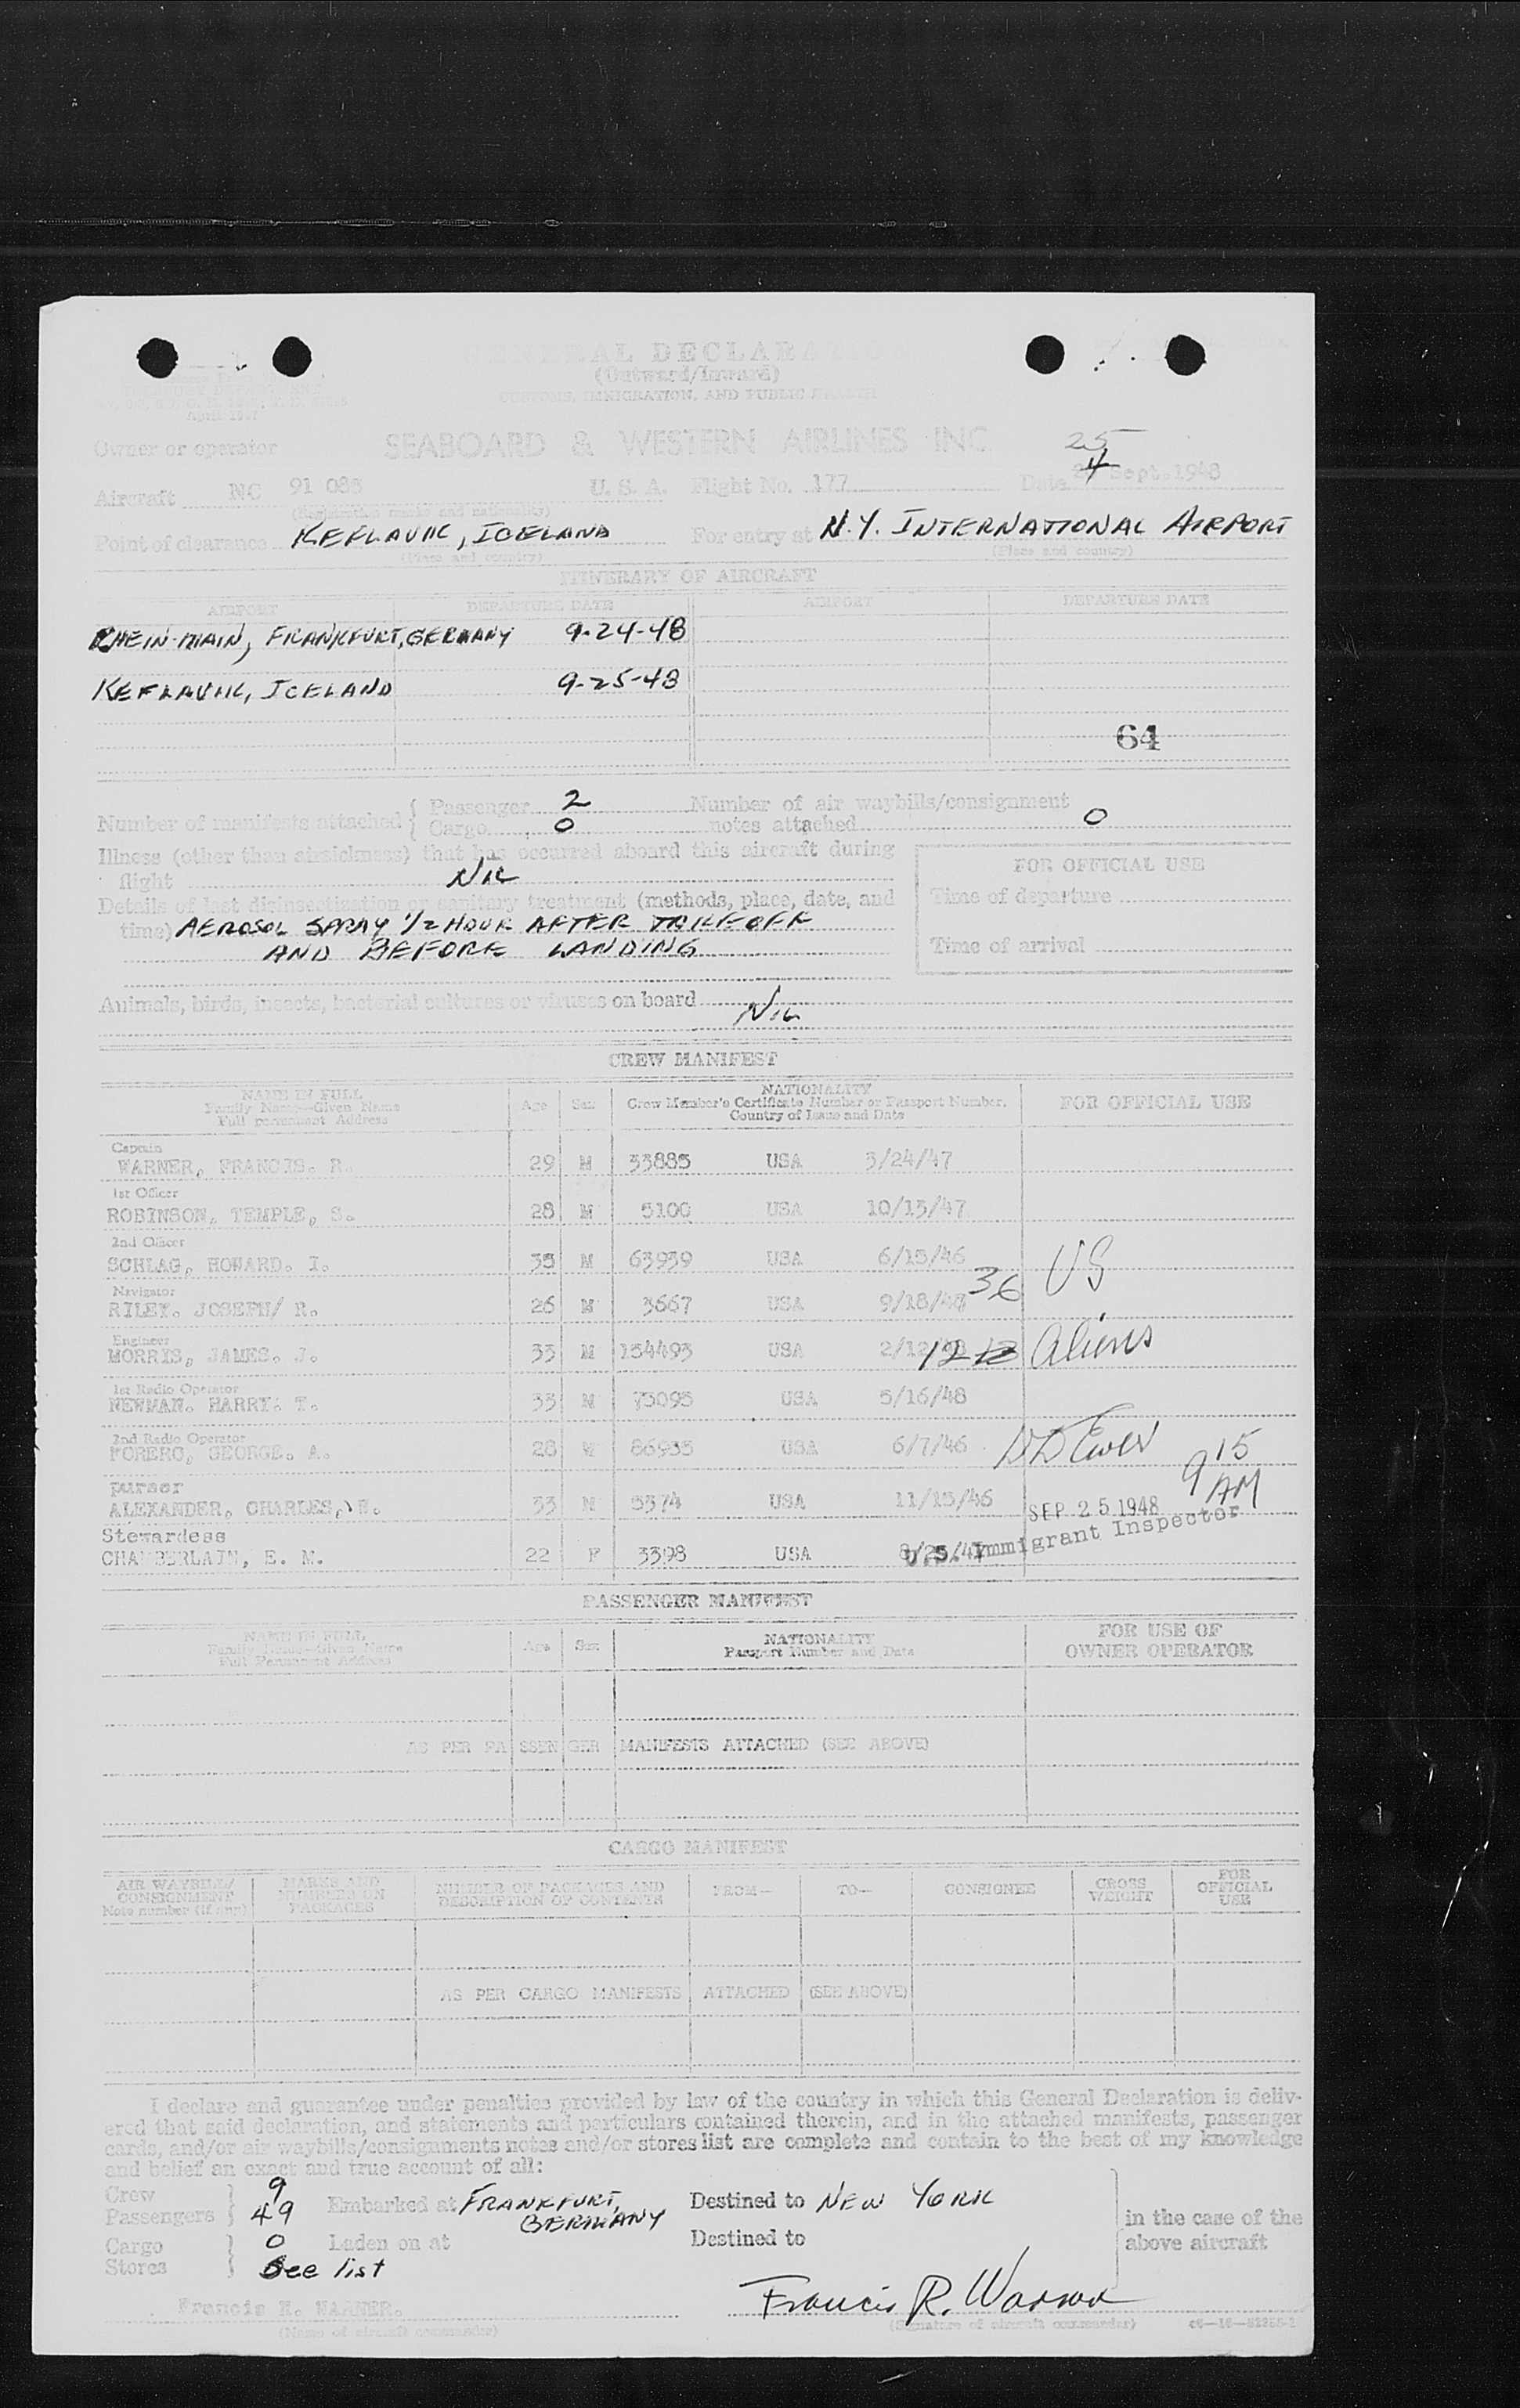 GENERAL DECLARATION
(Outward/Inward)
CUSTOMS, IMMIGRATION, AND PUBLIC HEALTH
April 1947
Owner or operator SEABOARD & WESTERN AIRLINES INC 25
Aircraft NC 91 083 U. S. A. Flight No. 177 Date 4 Sept. 1948
(Registration marks and nationality)
Point of clearance KEFLAVIK, ICELAND For entry at N.Y. INTERNATIONAL AIRPORT
(Place and country) (Place and country)
ITINERARY OF AIRCRAFT
AIRPORT DEPARTURE DATE AIRPORT DEPARTURE DATE
RHEIN-MAIN, FRANKFURT, GERMANY 9-24-48
KEFLAVIK, ICELAND 9-25-48
64
Number of manifests attached { Passenger 2 Number of air waybills/consignment
{ Cargo 0 notes attached 0
Illness (other than airsickness) that has occurred aboard this aircraft during
flight NIL
FOR OFFICIAL USE
Details of last disinsectization or sanitary treatment (methods, place, date, and
Time of departure
time) AEROSOL SPRAY 1/2 HOUR AFTER TAKEOFF
AND BEFORE LANDING
Time of arrival
Animals, birds, insects, bacterial cultures or viruses on board NIL
CREW MANIFEST
NAME IN FULL
Family Name—Given Name
Full permanent Address
Age Sex
NATIONALITY
Crew Member's Certificate Number or Passport Number,
Country of Issue and Date
FOR OFFICIAL USE
Captain
WARNER, FRANCIS. R. 29 M 33885 USA 3/24/47
1st Officer
ROBINSON, TEMPLE, S. 28 M 5100 USA 10/13/47
2nd Officer
SCHLAG, HOWARD. I. 35 M 63939 USA 6/15/46
36 US
Navigator
RILEY. JOSEPH/ R. 26 M 3667 USA 9/18/47
Engineer
MORRIS, JAMES. J. 33 M 154493 USA 2/12/48
12 Aliens
1st Radio Operator
NEWMAN. HARRY. T. 33 M 73095 USA 5/16/48
2nd Radio Operator
GEORGE. A. 28 M 86935 USA 6/7/46
9 15 AM
purser
ALEXANDER, CHARLES, 33 M 5374 USA 11/15/46
SEP 25 1948
U.S. Immigrant Inspector
Stewardess
CHAMBERLAIN, E. M. 22 F 3398 USA
PASSENGER MANIFEST
NAME IN FULL
Family Name—Given Name
Full Permanent Address
Age Sex
NATIONALITY
Passport Number and Date
FOR USE OF
OWNER OPERATOR
AS PER PASSENGER MANIFESTS ATTACHED (SEE ABOVE)
CARGO MANIFEST
AIR WAYBILL/
CONSIGNMENT
Note number (if any)
MARKS AND
NUMBERS ON
PACKAGES
NUMBER OF PACKAGES AND
DESCRIPTION OF CONTENTS
FROM— TO— CONSIGNEE
GROSS
WEIGHT
FOR
OFFICIAL
USE
AS PER CARGO MANIFESTS ATTACHED (SEE ABOVE)
I declare and guarantee under penalties provided by law of the country in which this General Declaration is deliv-
ered that said declaration, and statements and particulars contained therein, and in the attached manifests, passenger
cards, and/or air waybills/consignments notes and/or stores list are complete and contain to the best of my knowledge
and belief an exact and true account of all:
Crew 9
Passengers 49 Embarked at FRANKFURT, GERMANY Destined to NEW YORK
in the case of the
Cargo 0 Laden on at Destined to above aircraft
Stores See list
Francis R. WARNER. Francis R. Warner
(Name of aircraft commander) (Signature of aircraft commander)